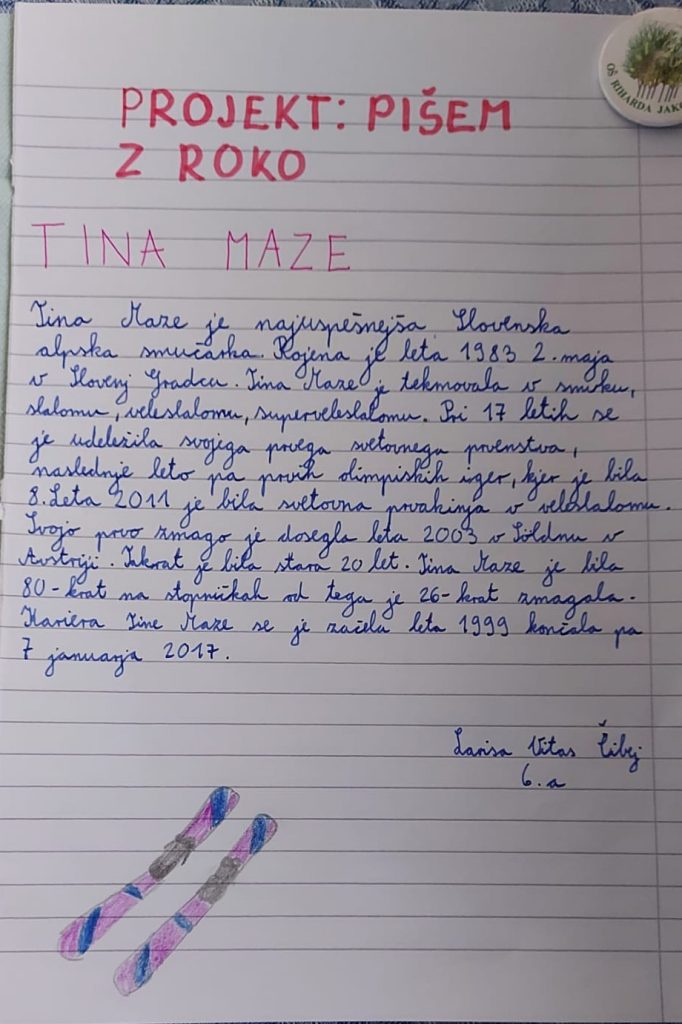 OŠ RIHARDA JAK
PROJEKT: PIŠEM
Z ROKO
TINA MAZE
Tina Maze je najuspešnejša Slovenska
alpska smučarka. Rojena je leta 1983 2. maja
v Slovenj Gradcu. Tina Maze je tekmovala v smuku,
slalomu, veleslalomu, superveleslalomu. Pri 17 letih se
je udeležila svojega prvega svetovnega prvenstva,
naslednje leto pa prvih olimpiskih iger, kjer je bila
8. Leta 2011 je bila svetovna prvakinja v veleslalomu.
Svojo prvo zmago je dosegla leta 2003 v Söldnu v
Avstriji. Takrat je bila stara 20 let. Tina Maze je bila
80-krat na stopničkah od tega je 26-krat zmagala.
Kariera Tine Maze se je začela leta 1999 končala pa
7 januarja 2017.
Larisa Vitas Čibej
6.a